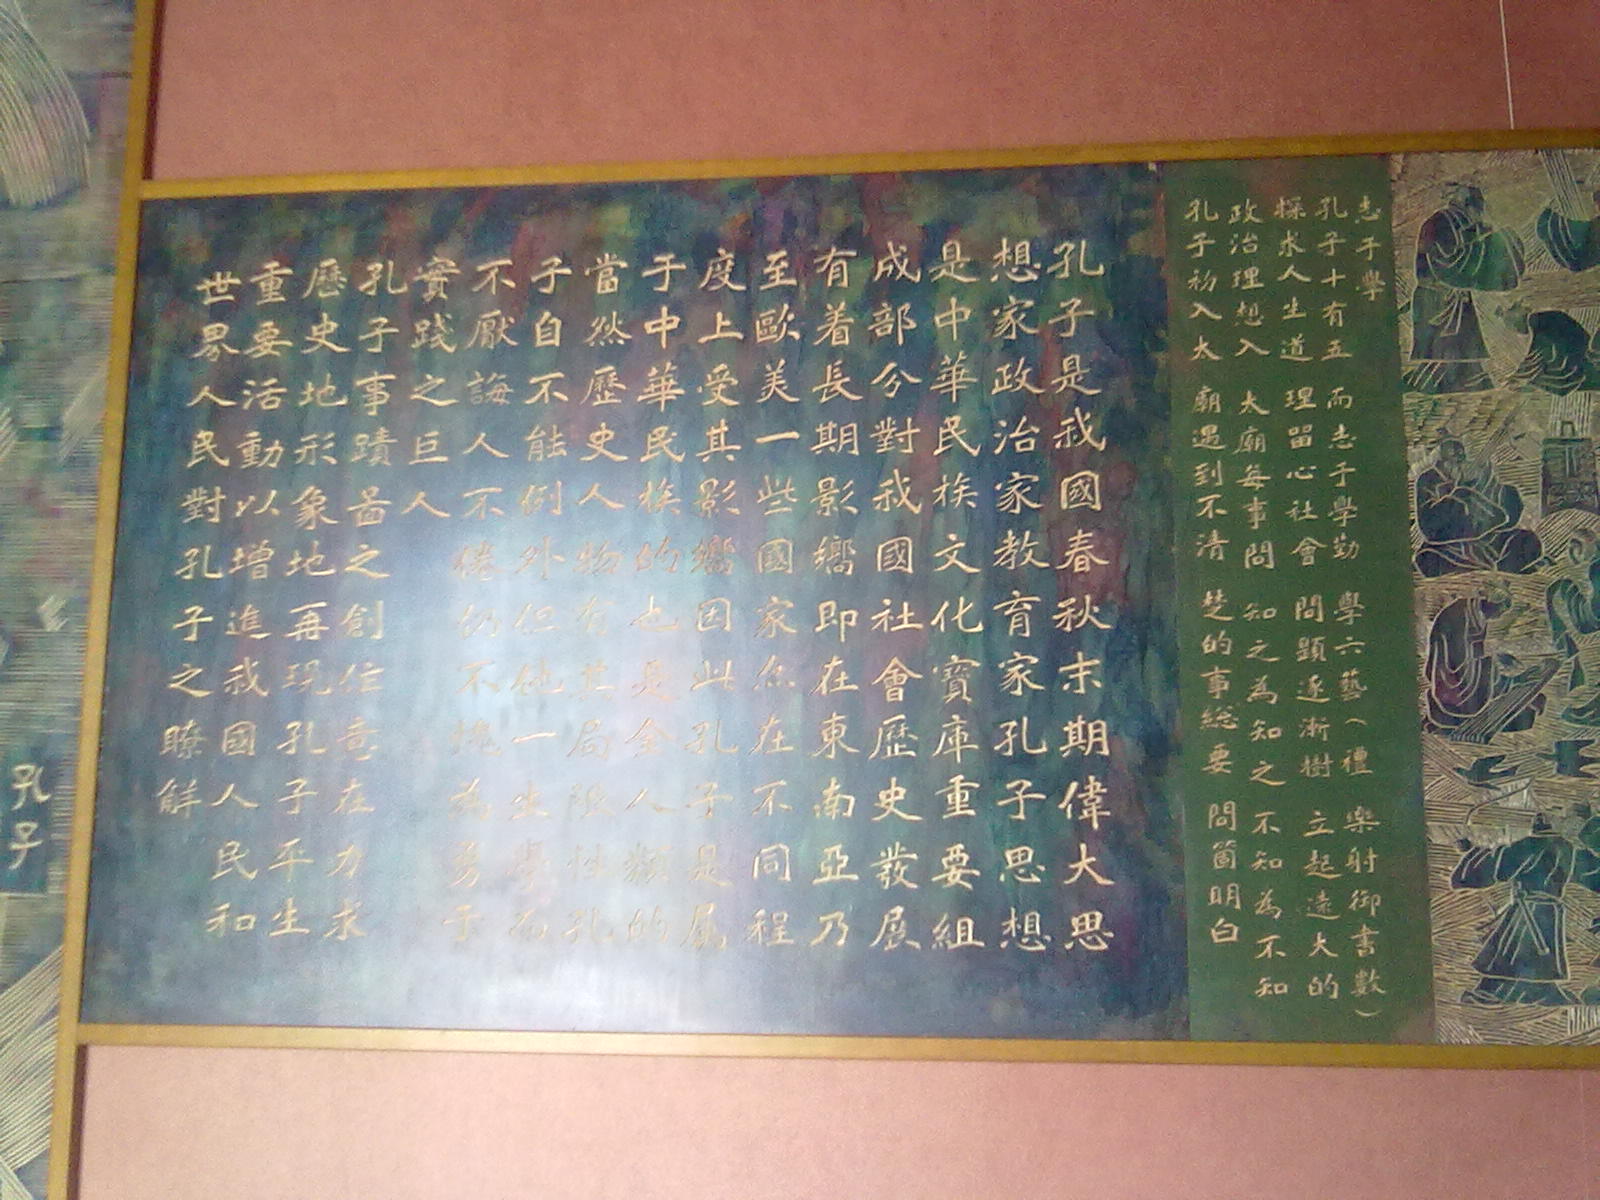 志于學
孔子十有五而志于學勤學六藝(禮樂射御書數)
探求人生道理留心社會問題逐漸樹立起遠大的
政治理想入太廟每事問知之為知之不知為不知
孔子初入太廟遇到不清楚的事総要問箇明白
孔子是我國春秋末期偉大思
想家政治家教育家孔子思想
是中華民族文化寶庫重要組
成部分對我國社會歷史發展
有着長期影嚮即在東南亞乃
至歐美一些國家亦在不同程
度上受其影嚮因此孔子是屬
于中華民族的也是全人類的
當然歷史人物有其局限性孔
子自不能例外但他一生學而
不厭誨人不倦仍不愧為勇于
實踐之巨人
孔子事蹟啚之創作意在力求
歷史地形象地再現孔子平生
重要活動以增進我國人民和
世界人民對孔子之瞭解
孔子